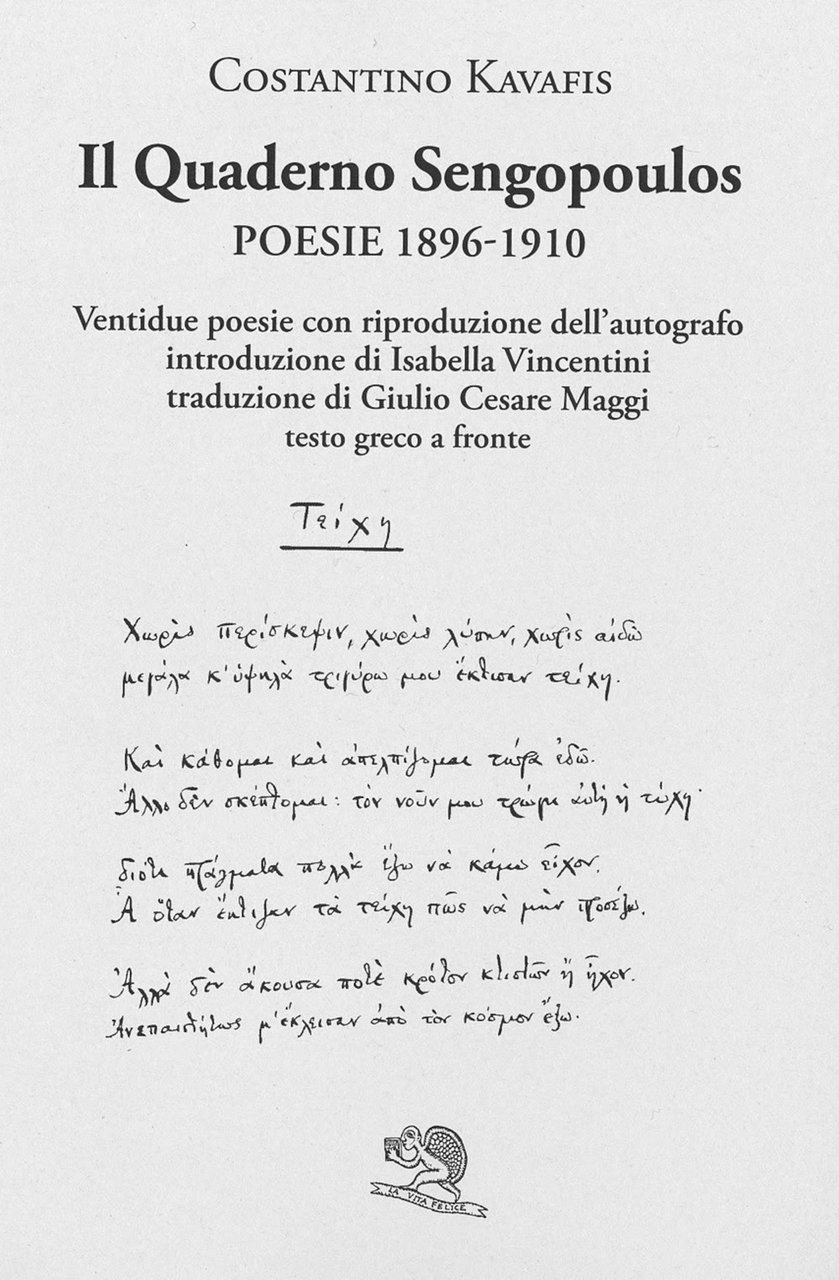 Costantino Kavafis
Il Quaderno Sengopoulos
POESIE 1896-1910
Ventidue poesie con riproduzione dell’autografo
introduzione di Isabella Vincentini
traduzione di Giulio Cesare Maggi
testo greco a fronte
Τείχη
Χωρὶς περίσκεψιν, χωρὶς λύπην, χωρὶς αἰδῶ
μεγάλα κ’ ὑψηλὰ τριγύρω μου ἔκτισαν τείχη.
Καὶ κάθομαι καὶ ἀπελπίζομαι τώρα ἐδῶ.
Ἄλλο δὲν σκέπτομαι: τὸν νοῦν μου τρώγει αὐτὴ ἡ τύχη·
διότι πράγματα πολλὰ ἔξω νὰ κάμω εἶχον.
Ἆ ὅταν ἔκτιζαν τὰ τείχη πῶς νὰ μὴν προσέξω.
Ἀλλὰ δὲν ἄκουσα ποτὲ κρότον κτιστῶν ἢ ἦχον.
Ἀνεπαισθήτως μ’ ἔκλεισαν ἀπὸ τὸν κόσμον ἔξω.
LA VITA FELICE